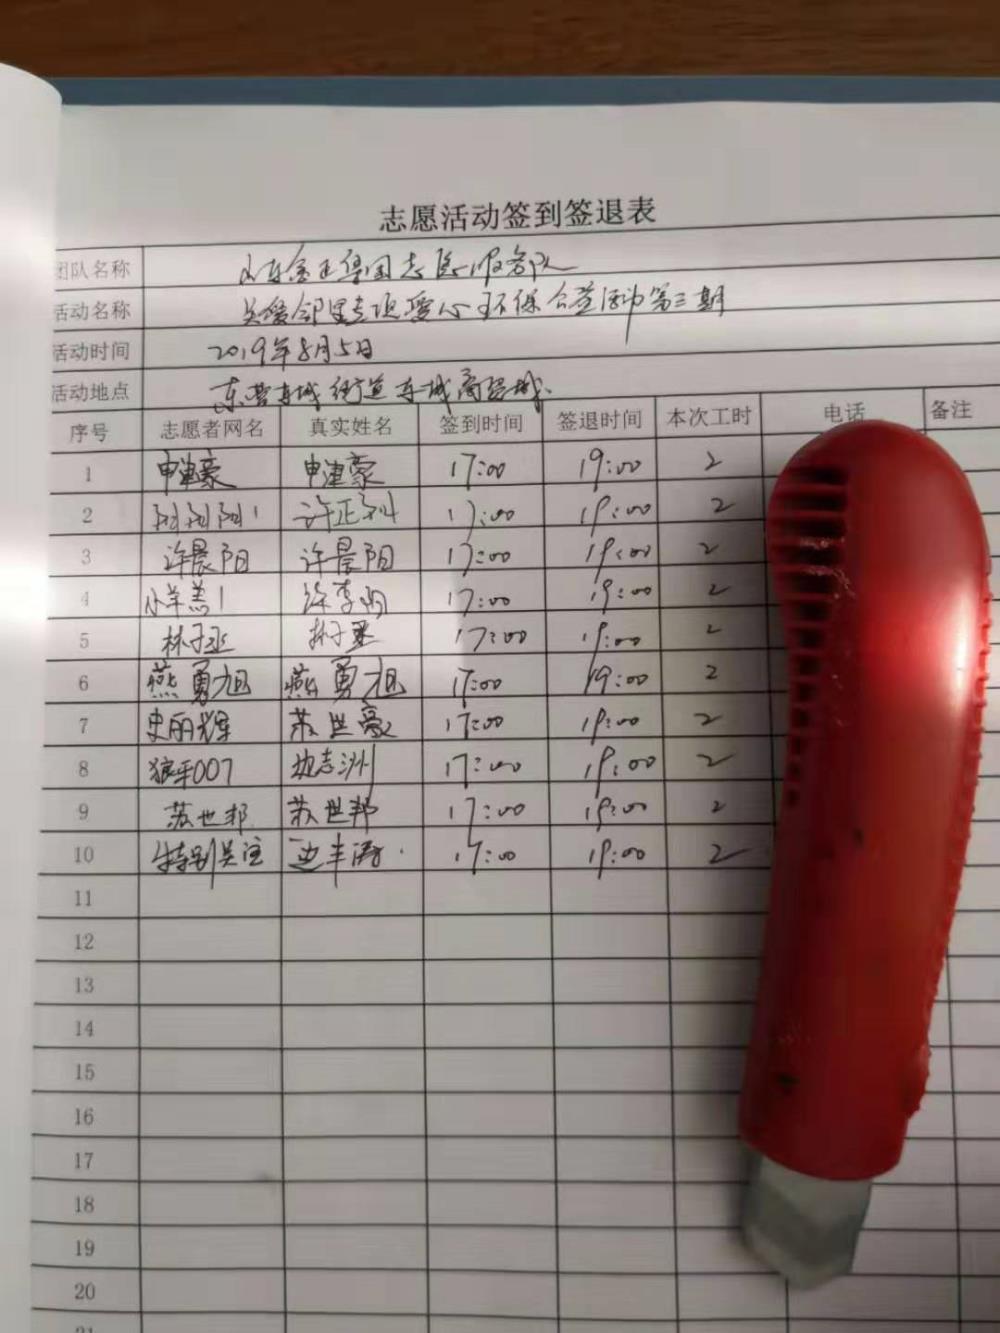 志愿活动签到签退表
团队名称 山东金正集团志愿服务队
活动名称 关爱邻里专项爱心环保公益活动第三期
活动时间 2019年8月5日
活动地点 东营东城街道东城商贸城
序号 志愿者网名 真实姓名 签到时间 签退时间 本次工时 电话 备注
1 申津豪 申津豪 17:00 19:00 2
2 许正 17:00 19:00 2
3 许晨阳 许晨阳 17:00 19:00 2
4 小羊羔1 17:00 19:00 2
5 林子丞 林子丞 17:00 19:00 2
6 燕勇旭 燕勇旭 17:00 19:00 2
7 史丽辉 苏世豪 17:00 19:00 2
8 狼牙007 志洲 17:00 19:00 2
9 苏世邦 苏世邦 17:00 19:00 2
10 特别关注 17:00 19:00 2
11
12
13
14
15
16
17
18
19
20